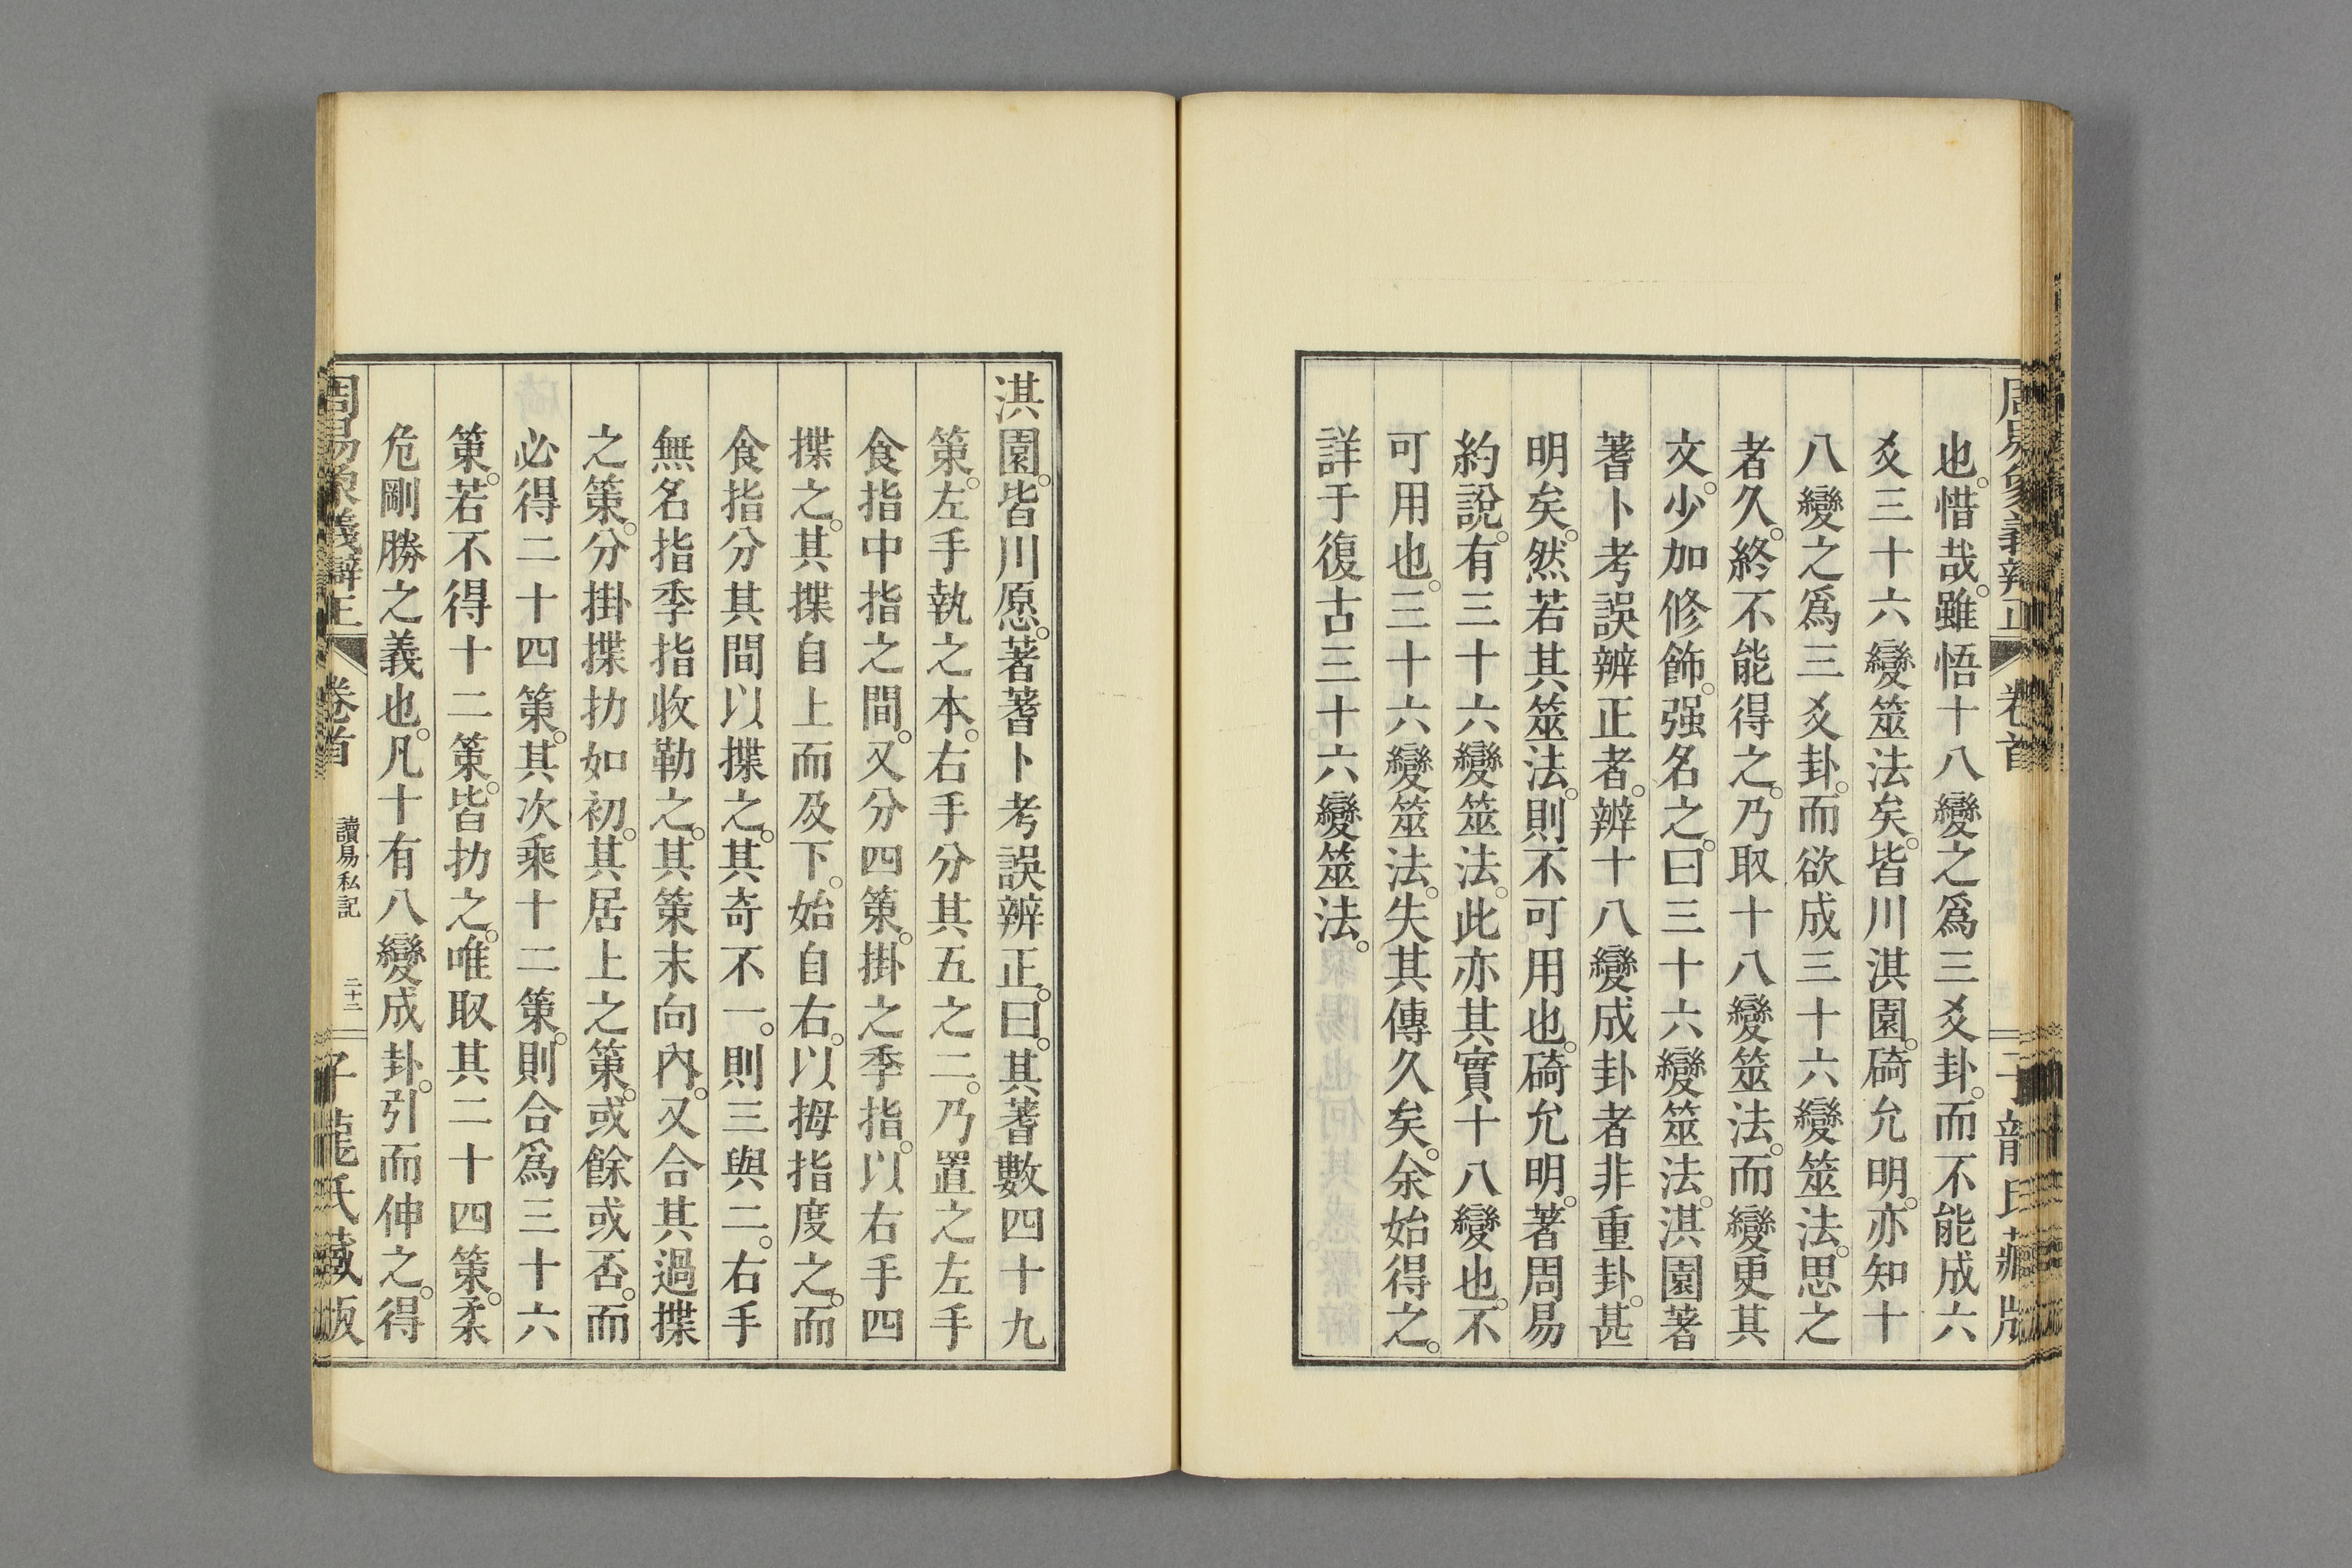 周易象義辨正　卷首　子龍氏藏版
也。惜哉。雖悟十八變之爲三爻卦。而不能成六
爻三十六變筮法矣。皆川淇園。碕允明。亦知十
八變之爲三爻卦。而欲成三十六變筮法。思之
者久。終不能得之。乃取十八變筮法。而變更其
文。少加修飾。强名之。曰三十六變筮法。淇園著
蓍卜考誤辨正者。辨十八變成卦者非重卦。甚
明矣。然若其筮法。則不可用也。碕允明。著周易
約說。有三十六變筮法。此亦其實十八變也。不
可用也。三十六變筮法。失其傳久矣。余始得之。
詳于復古三十六變筮法。
淇園。皆川愿。著蓍卜考誤辨正。曰。其蓍數四十九
策。左手執之本。右手分其五之二。乃置之左手
食指中指之間。又分四策。掛之季指。以右手四
揲之。其揲自上而及下。始自右。以拇指度之。而
食指分其間以揲之。其奇不一。則三與二。右手
無名指季指收勒之。其策末向內。又合其過揲
之策。分掛揲扐如初。其居上之策。或餘或否。而
必得二十四策。其次乘十二策。則合爲三十六
策。若不得十二策。皆扐之。唯取其二十四策。柔
危剛勝之義也。凡十有八變成卦。引而伸之。得
周易象義辨正　卷首　讀易私記　二十二　子龍氏藏版